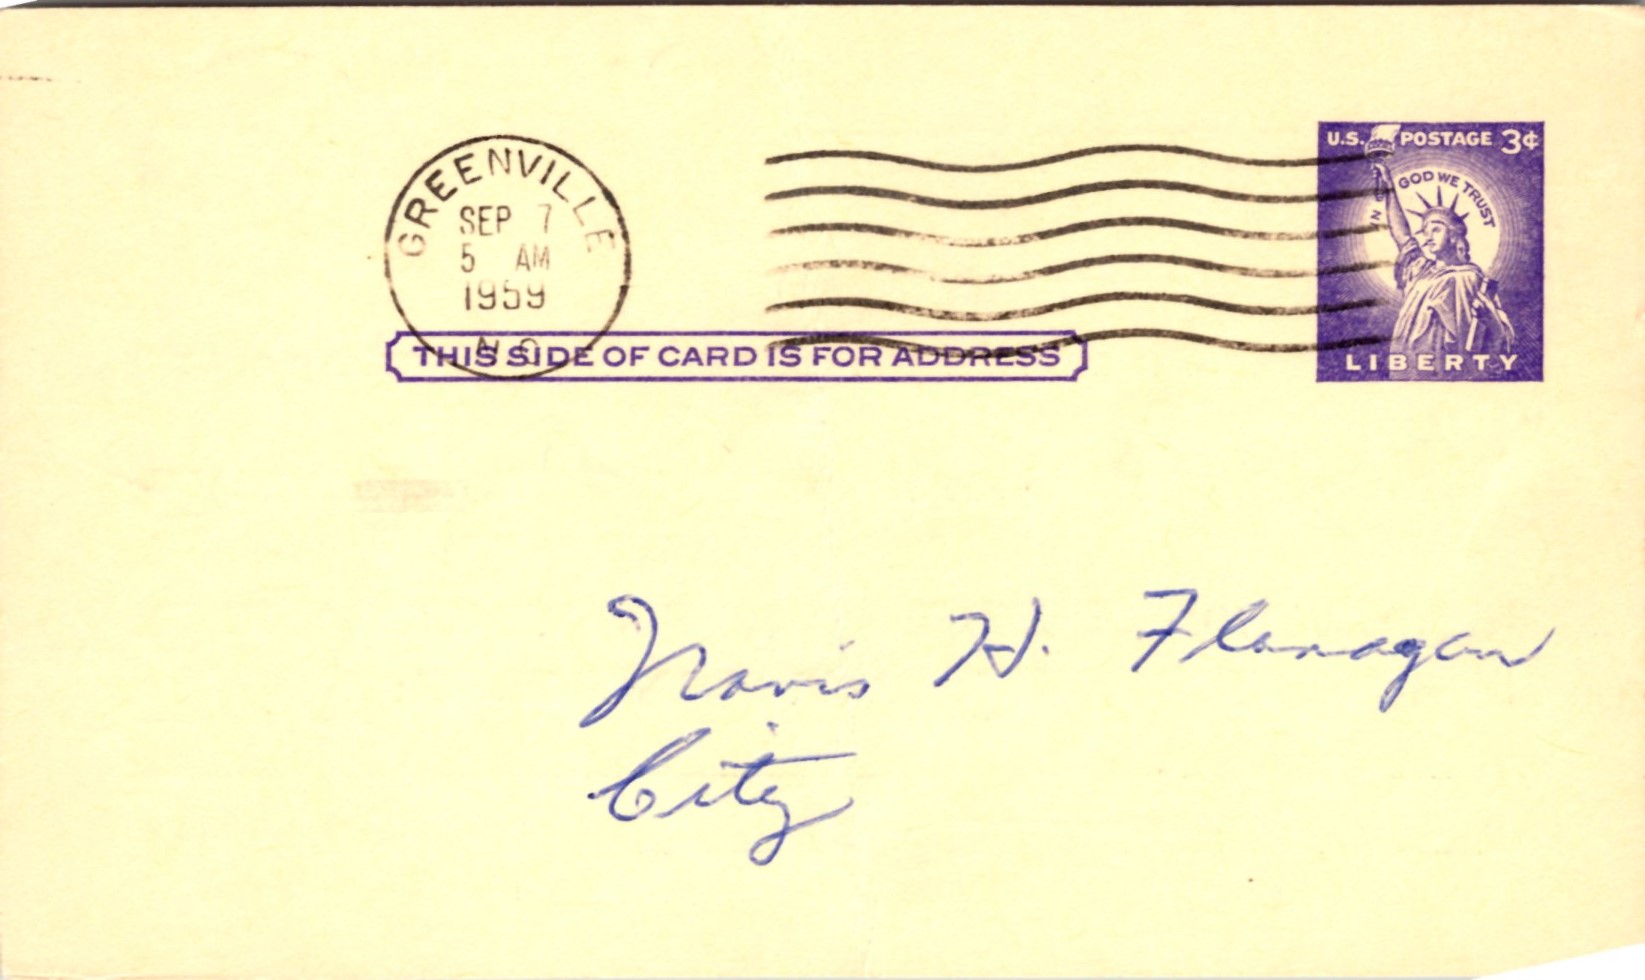 U.S. POSTAGE 3¢
IN GOD WE TRUST
GREENVILLE
SEP 7
5 AM
1959
N.C.
THIS SIDE OF CARD IS FOR ADDRESS
LIBERTY
Travis H. Flanagan
City